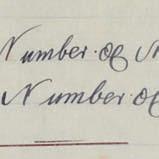 Number of
Number of